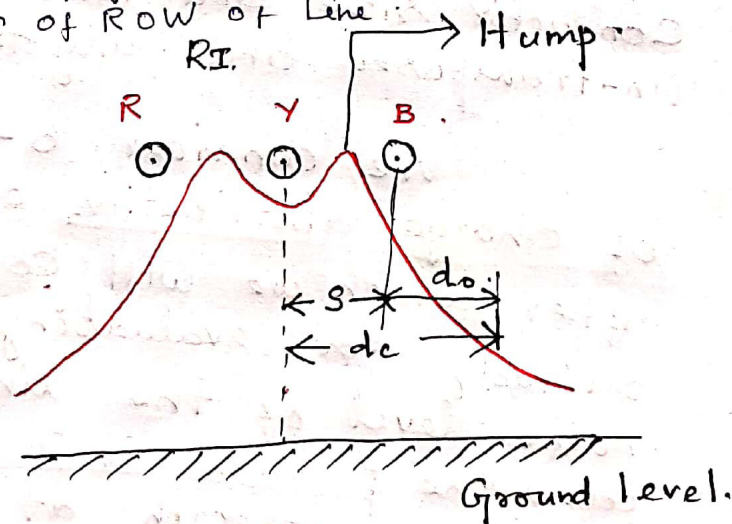 of ROW of Line
Hump
RI.
R Y B
do
S
dc
Ground level.